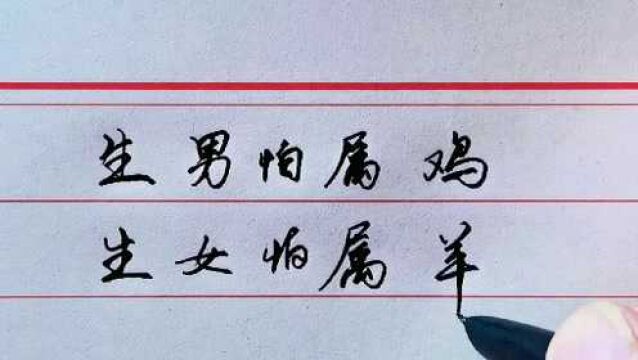 生男怕属鸡
生女怕属羊